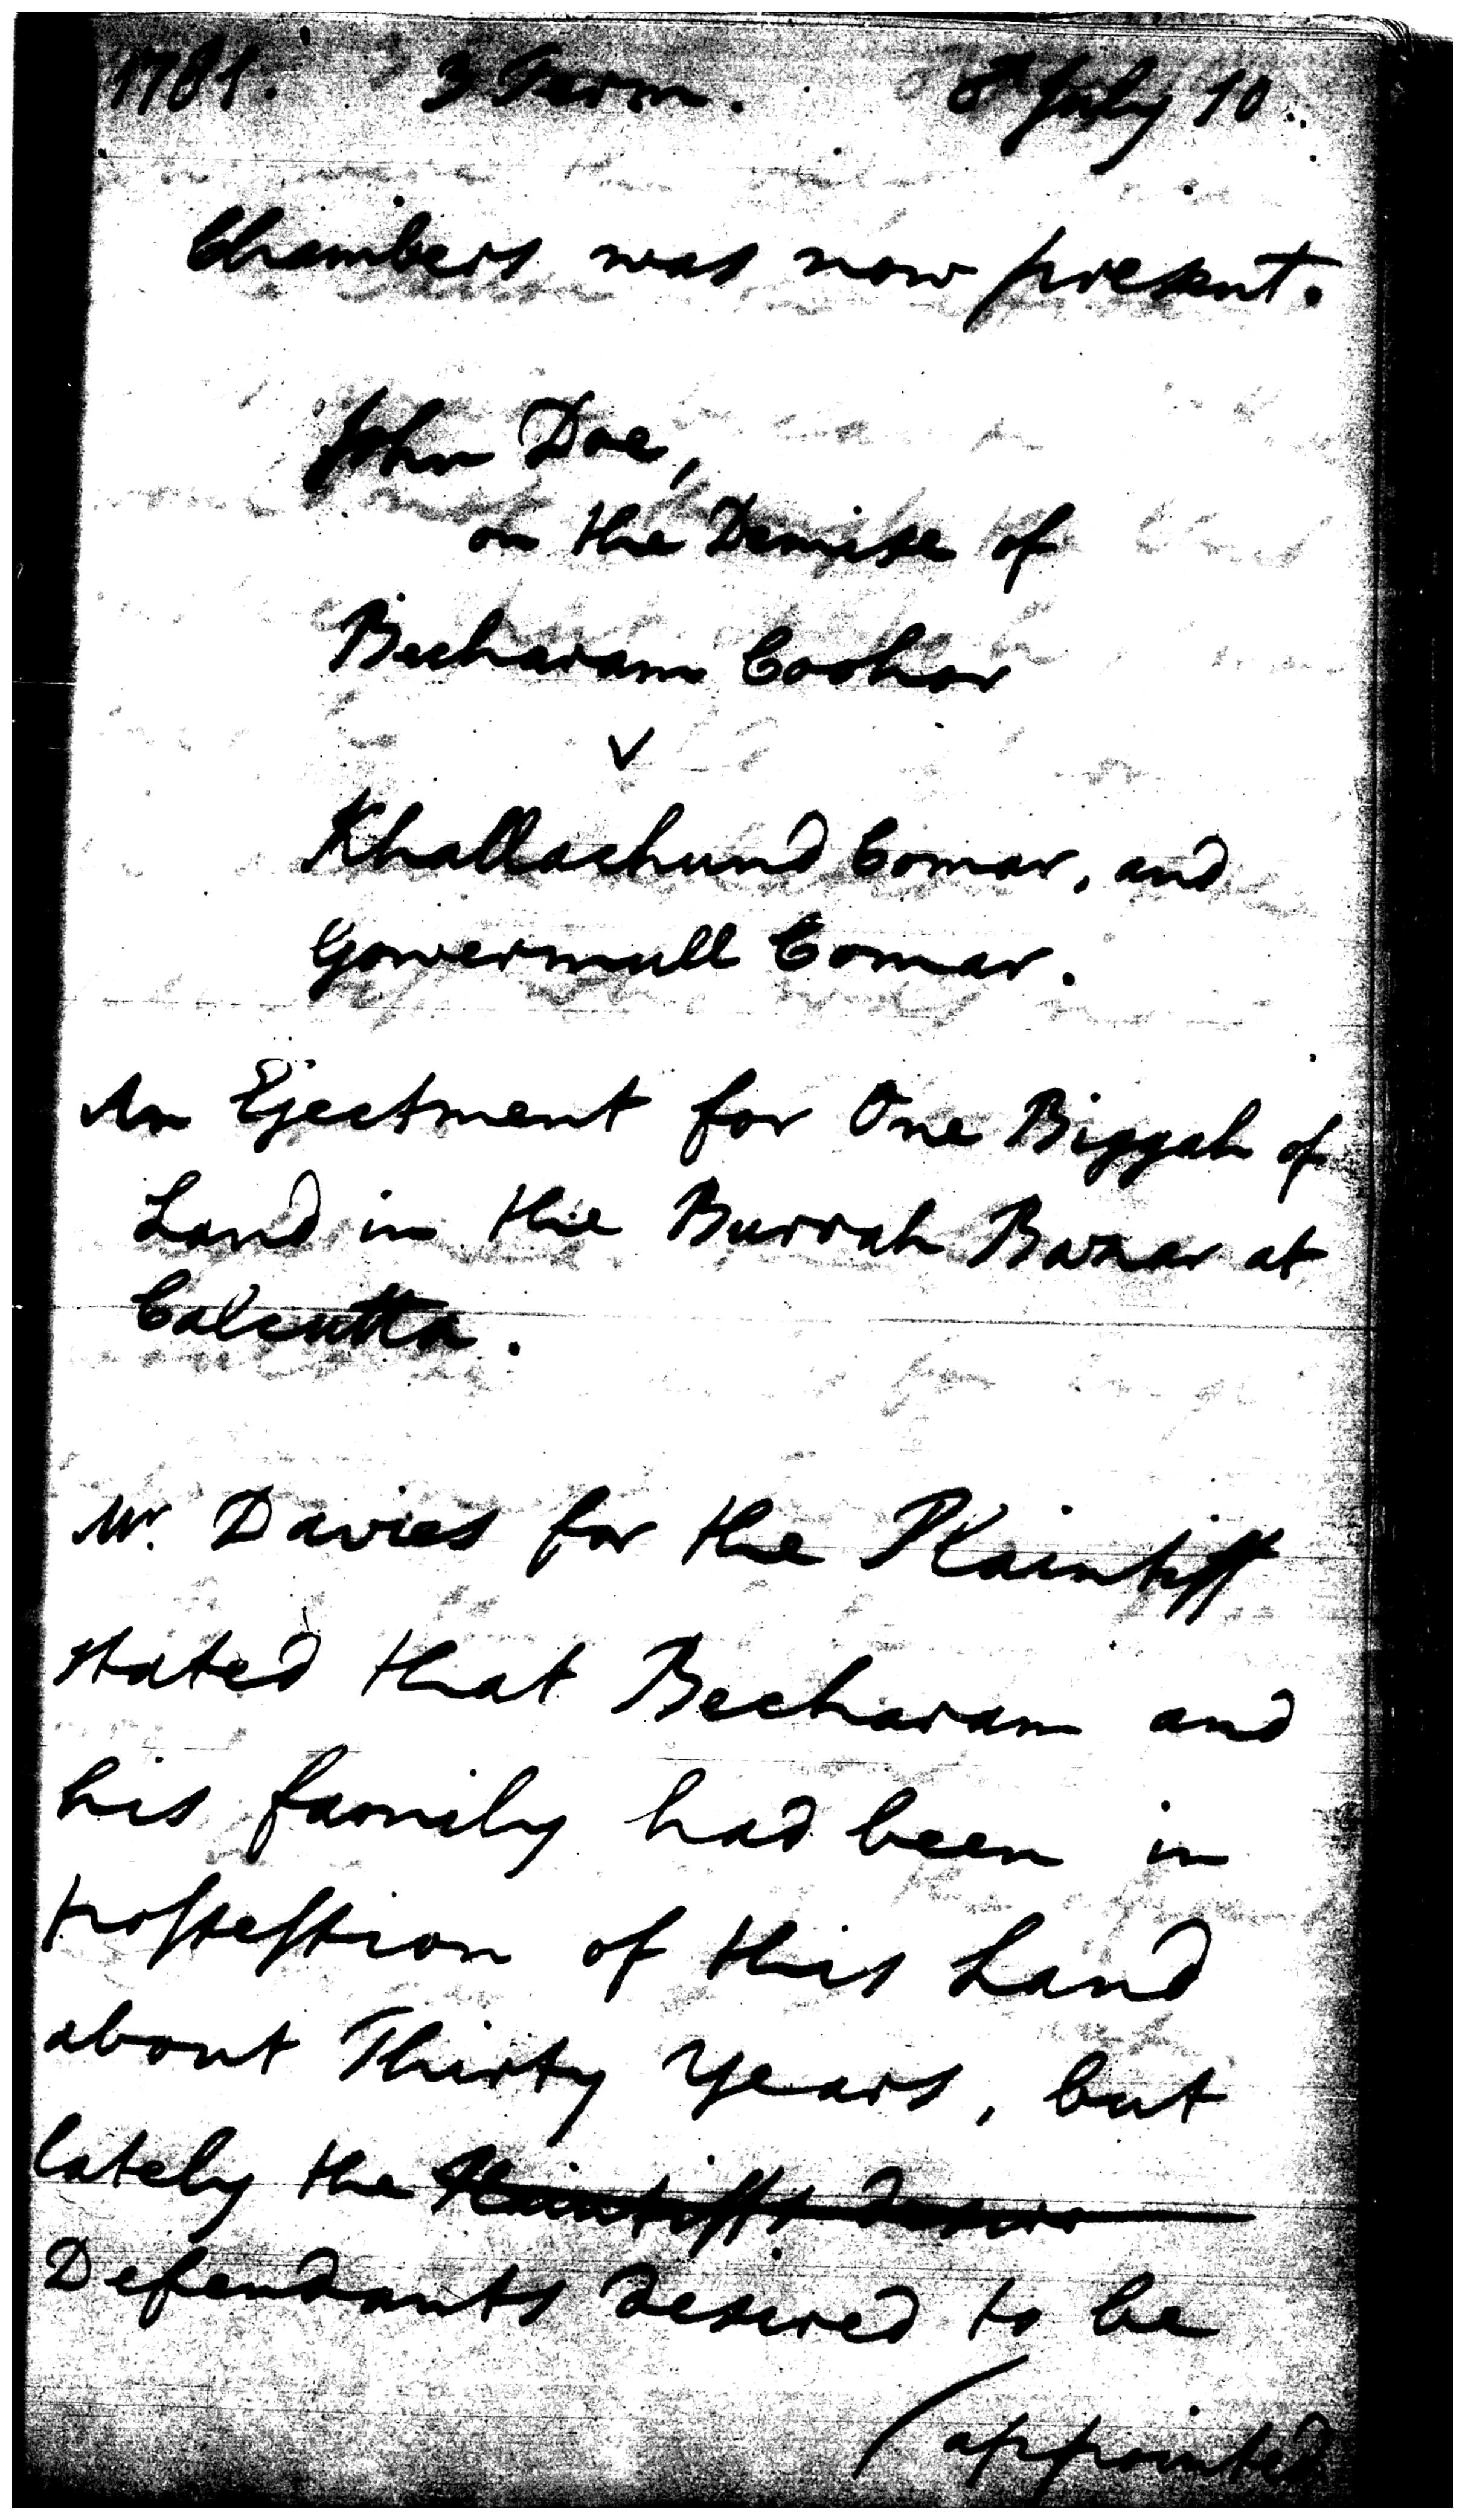 1781. 3 Term. July 10.
Chambers was now present.
John Doe,
on the Demise of
Becharam Coohar
v
Khallachund Comar, and
Gowermull Comar.
An Ejectment for One Biggah of
Land in the Burrah Bazar at
Calcutta.
Mr. Davies for the Plaintiff
stated that Becharam and
his family had been in
possession of this Land
about Thirty Years, but
lately the Plaintiffs desire
Defendants desired to be
(appointed